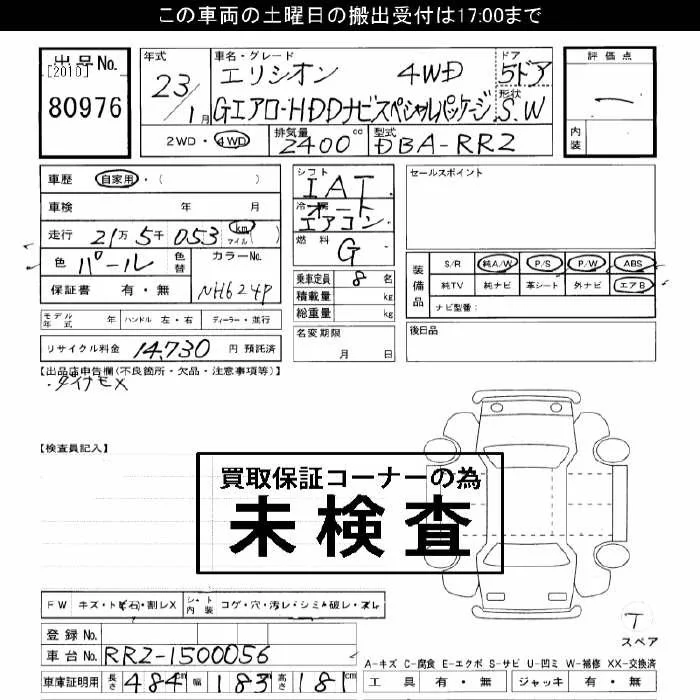 この車両の土曜日の搬出受付は17:00まで
出品No.
[2010]
80976
年式 23/1月
車名・グレード エリシオン 4WD
Gエアロ・HDDナビスペシャルパッケージ
ドア 5ドア
形状 S.W
2WD・4WD 排気量 2400cc 型式 DBA-RR2
評価点
—
内装
車歴 自家用・( )
車検 年 月
走行 21万5千053 km マイル( )
色 パール 色替 カラーNo. NH624P
保証書 有・無
モデル年式 年 ハンドル 左・右 ディーラー・並行
リサイクル料金 14,730 円 預託済
シフト IAT
冷房 オートエアコン
燃料 G
乗車定員 8 名
積載量 kg
総重量 kg
名変期限
月 日
セールスポイント
装備品 S/R 純A/W P/S P/W ABS
純TV 純ナビ 革シート 外ナビ エアB
ナビ型番:
後日品
【出品店申告欄(不良箇所・欠品・注意事項等)】
・ダイナモX
【検査員記入】
買取保証コーナーの為
未検査
FW キズ・トビ石・割レX シート内装 コゲ・穴・汚レ・シミ・破レ・スレ
登録No.
車台No. RR2-1500056
車庫証明用 長さ 484cm 幅 183cm 高さ 181cm
T
スペア
A-キズ C-腐食 E-エクボ S-サビ U-凹ミ W-補修 XX-交換済
工具 有・無 ジャッキ 有・無